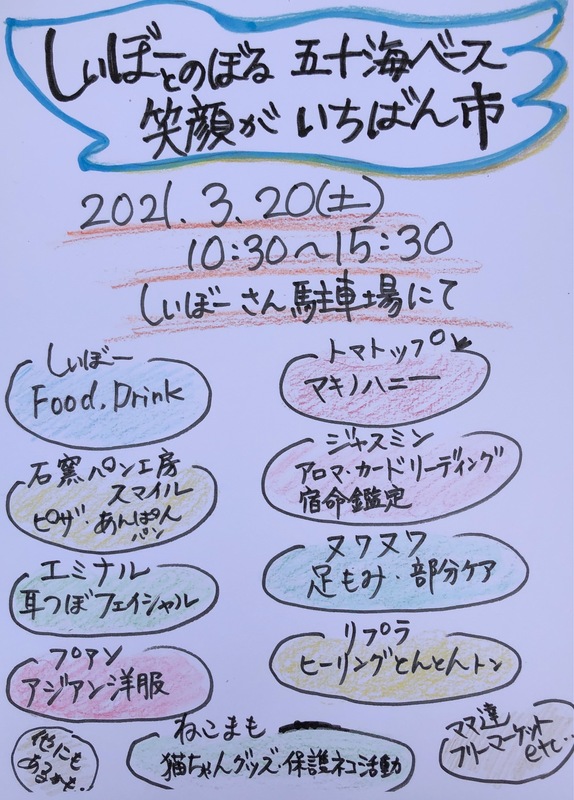 しいぼーとのぼる 五十海ベース
笑顔が いちばん市
2021.3.20(土)
10:30～15:30
しいぼーさん駐車場にて
しいぼー
Food.Drink
トマトップ
マキノハニー
石窯パン工房
スマイル
ピザ・あんぱん
パン
ジャスミン
アロマ・カードリーディング
宿命鑑定
エミナル
耳つぼフェイシャル
ヌクヌク
足もみ・部分ケア
プアン
アジアン洋服
リプラ
ヒーリングとんとんトン
他にも
あるかも.
ねこまも
猫ちゃんグッズ・保護ネコ活動
ママ達
フリーマーケット
etc..